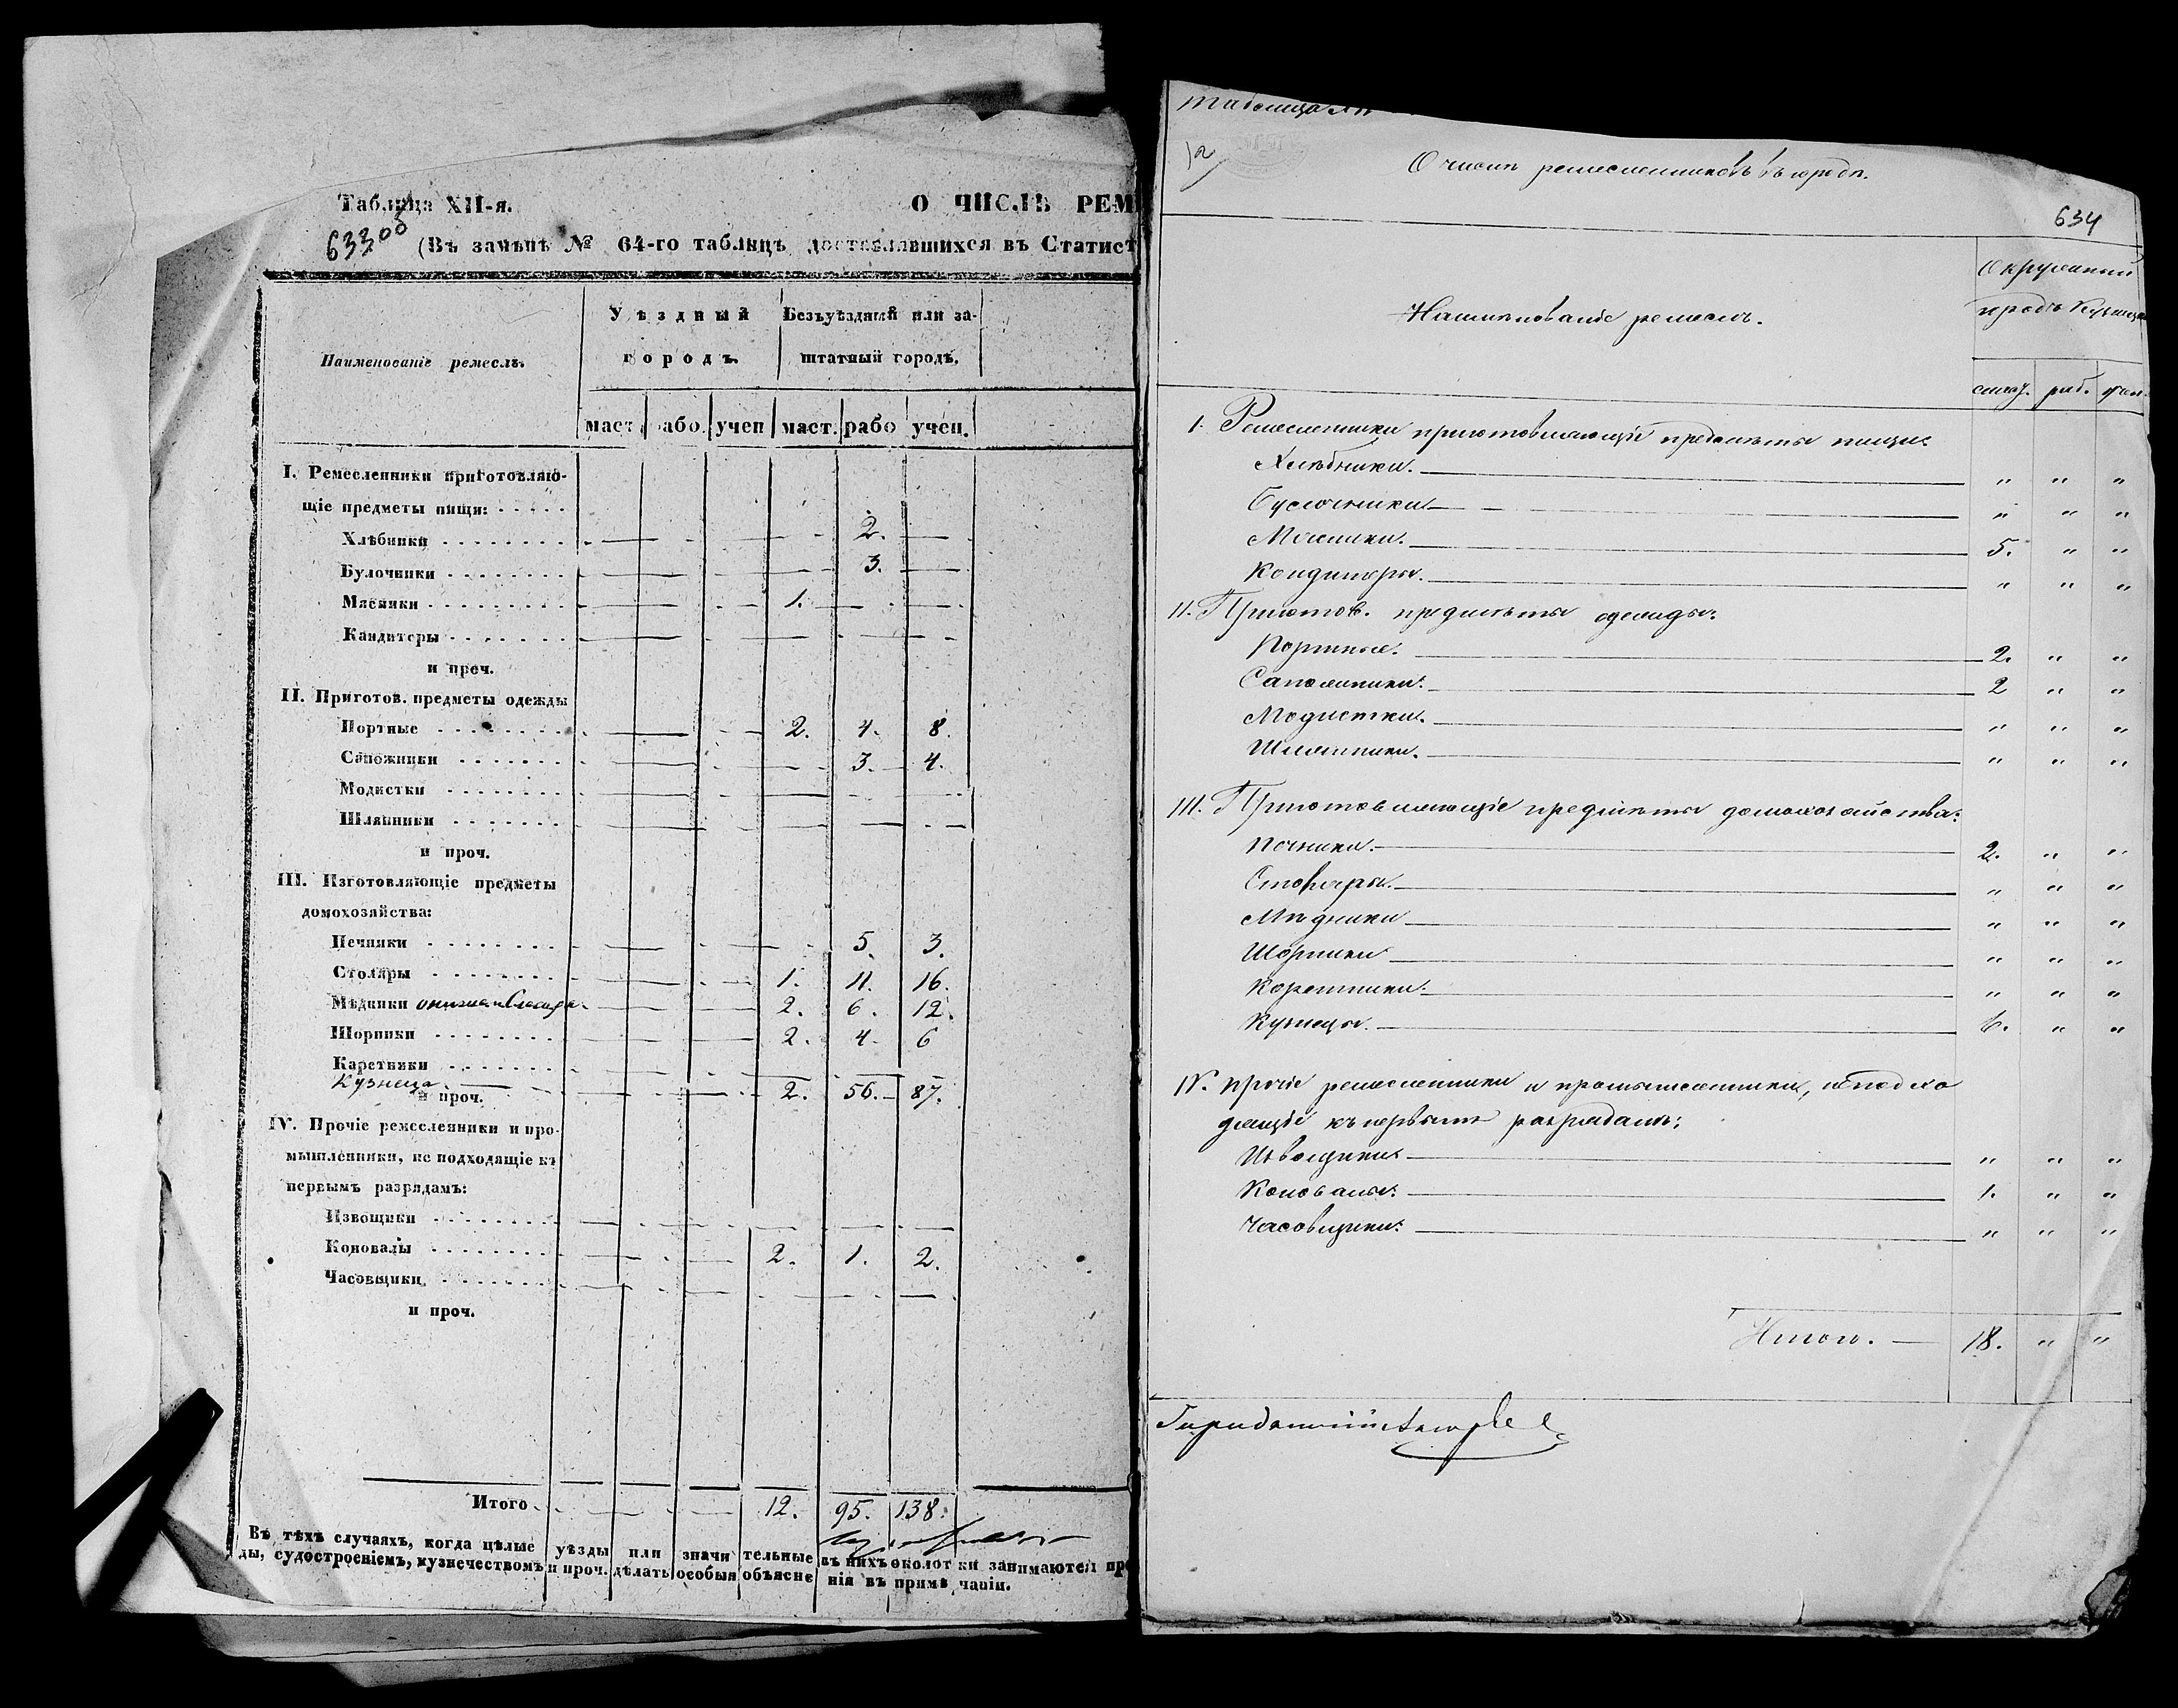 Таблица XII-я.
О ЧИСЛѢ РЕМ
633 (Въ замѣнъ № 64-го таблицъ доставлявшихся въ Статист
Наименованіе ремеслъ.
Уѣздный
городъ.
Безъуѣздный или за-
штатный городъ.
маст. рабо. учен маст. рабо учен.
I. Ремесленники приготовляю-
щіе предметы пищи:
Хлѣбники — — — — 2. —
Булочники — — — — 3. —
Мясники — — — 1. — —
Кандитеры — — — — — —
и проч.
II. Приготов. предметы одежды
Портные — — — 2. 4. 8.
Сапожники — — — — 3. 4.
Модистки — — — — — —
Шляпники — — — — — —
и проч.
III. Изготовляющіе предметы
домохозяйства:
Печники — — — — 5. 3.
Столяры — — — 1. 11. 16.
Мѣдники — — — 2. 6. 12.
Шорники — — — 2. 4. 6
Каретники — — — — — —
Кузнеца — — — 2. 56. 87.
и проч.
IV. Прочіе ремесленники и про-
мышленники, не подходящіе къ
первымъ разрядамъ:
Извощики — — — — — —
Коновалы — — — 2. 1. 2.
Часовщики — — — — — —
и проч.
Итого — — — 12. 95. 138.
Въ тѣхъ случаяхъ, когда цѣлые уѣзды или значительные въ нихъ околотки занимаются пр
ды, судостроеніемъ, кузнечествомъ и проч. дѣлать особыя объясненія въ примѣчаніи.
Таблица XII
12
О числѣ ремесленниковъ въ городѣ.
634
Наименованіе ремеслъ.
Окружный
городъ Кузнецкъ
маст. раб. учен.
I. Ремесленники приготовляющіе предметы пищи:
Хлѣбники. — " " "
Булочники — " " "
Мясники. — 5. " "
Кондиторы. — " " "
II. Приготов. предметы одежды:
Портные. — 2. " "
Сапожники. — 2 " "
Модистки. — " " "
Шляпники. — " " "
III. Приготовляющіе предметы домохозяйства:
Печники. — 2. " "
Столяры. — " " "
Мѣдники — " " "
Шорники — " " "
Каретники. — " " "
Кузнецы. — 6. " "
IV. Прочіе ремесленники и промышленники, неподхо
дящіе къ первымъ разрядамъ:
Извощики — " " "
Коновалы. — 1. " "
Часовщики. — " " "
Итого. — 18. " "